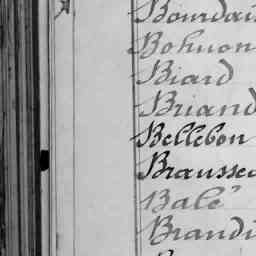 Bourdais
Bohuon
Biard
Briand
Bellebon
Brausse
Balé
Brandi